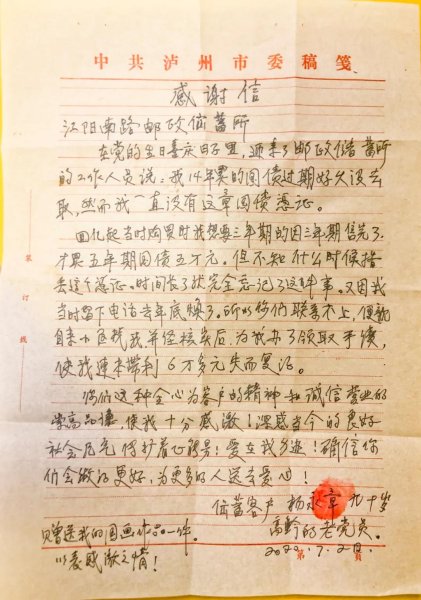 中共泸州市委稿笺
感谢信
江阳南路邮政储蓄所
在党的生日喜庆日子里，迎来了邮政储蓄所
的工作人员说：我14年买的国债过期好久没去
取，然而我一直没有这章国债凭证。
回忆起当时购买时我想要三年期的因三年期售完了
才买五年期国债五万元。但不知什么时候搞
丢这个凭证。时间长了我完全忘记了这件事。又因我
当时留下电话去年底换了。所以你们联系不上，便
亲自来小区找我并经核实后，为我办了领取手续，
使我连本带利6万多元失而复得。
你们这种全心为客户的精神和诚信营业的
崇高品德，使我十分感激！深感当今的良好
社会
爱在我身边！确信你
们会做得更好，为更多的人送去爱心！
储蓄客户 杨永章 九十岁
高龄的老党员。
只赠送我的国画作品一件。
以表感激之情！
2020.7.2日.
第 页
装订线